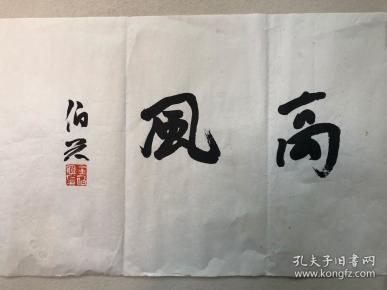 高風
伯器
孔夫子旧书网
www.kongfz.com